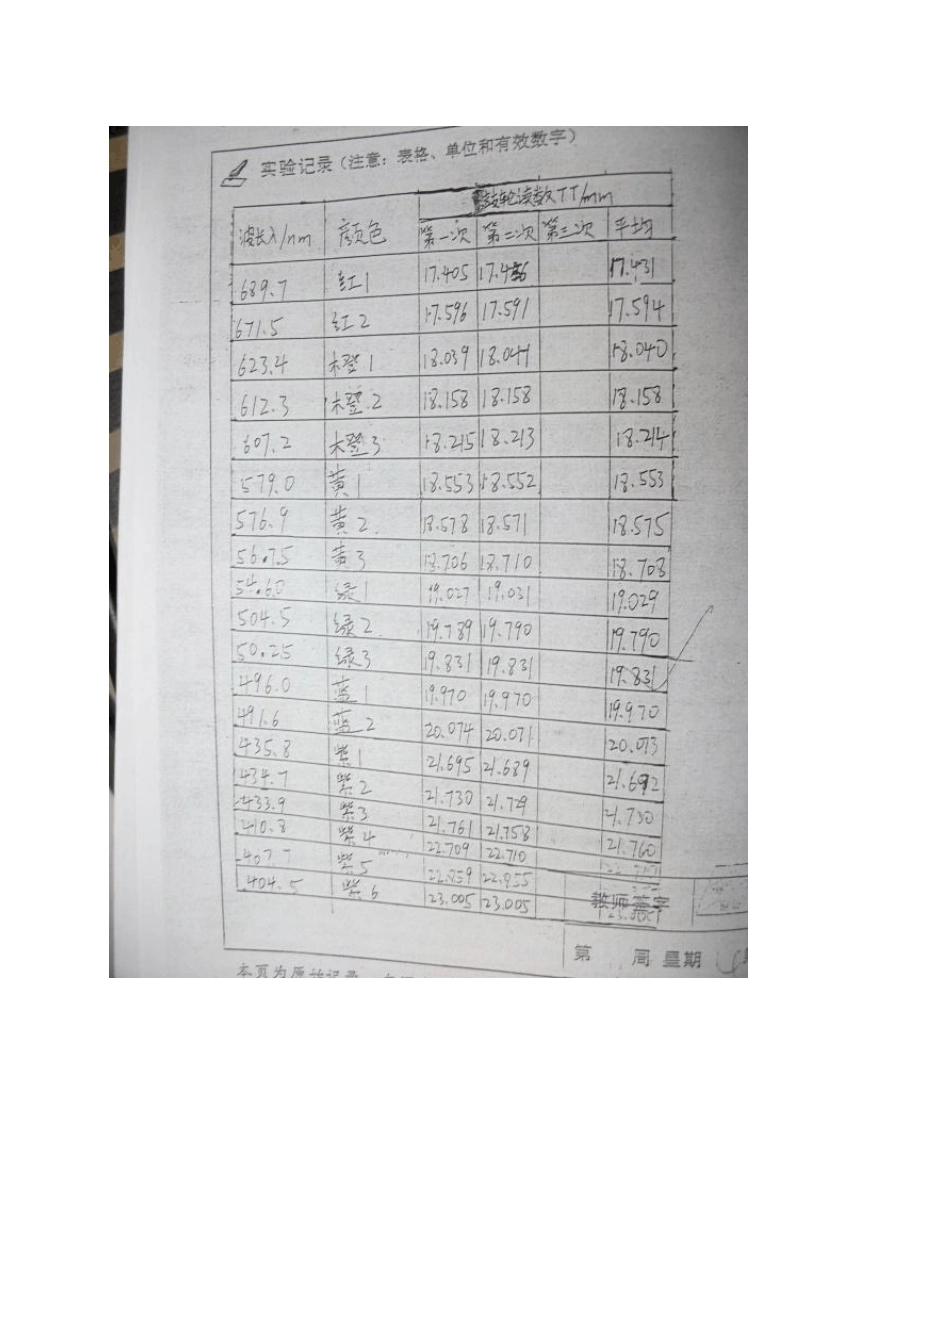 实验记录(注意:表格、单位和有效数字)
鼓轮读数TT/mm
波长λ/nm 颜色 第一次 第二次 第三次 平均
689.7 红1 17.405 17.456 17.431
671.5 红2 17.596 17.591 17.594
623.4 橙1 18.039 18.041 18.040
612.3 橙2 18.158 18.158 18.158
607.2 橙3 18.215 18.213 18.214
579.0 黄1 18.553 18.552 18.553
576.9 黄2 18.578 18.571 18.575
567.5 黄3 18.706 18.710 18.708
546.0 绿1 19.027 19.031 19.029
504.5 绿2 19.789 19.790 19.790
502.5 绿3 19.831 19.831 19.831
496.0 蓝1 19.970 19.970 19.970
491.6 蓝2 20.074 20.071 20.073
435.8 紫1 21.695 21.689 21.692
434.7 紫2 21.730 21.729 21.730
433.9 紫3 21.761 21.758 21.760
410.8 紫4 22.709 22.710
407.7 紫5 22.859 22.855
404.5 紫6 23.005 23.005
教师签字
第 周 星期
本页为原始记录